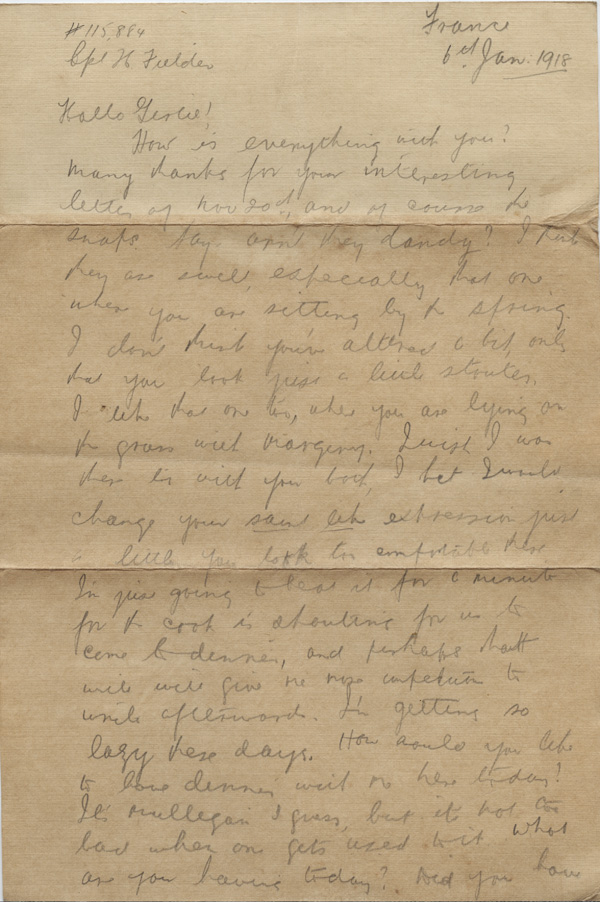 #115,894
Cpl H Fielder
France
6th Jan. 1918
Hallo Girlie!
How is everything with you?
Many thanks for your interesting
letter of Nov 20th, and of course the
snaps. Say aren't they dandy? I think
they are swell, especially that one
where you are sitting by the spring.
I don't think you've altered a bit, only
that you look just a little stouter.
I like that one too, where you are lying on
the grass with Margery. I wish I was
there to with you both, I bet I would
change your saint like expression just
a little you look too comfortable there
I'm just going to beat it for a minute
for the cook is shouting for us to
come to dinner, and perhaps that
will give me more to
write afterwards. I'm getting so
lazy these days. How would you like
to have dinner with me here today?
It's mulligan I guess, but it's not too
bad when one gets used to it. What
are you having today? Did you have